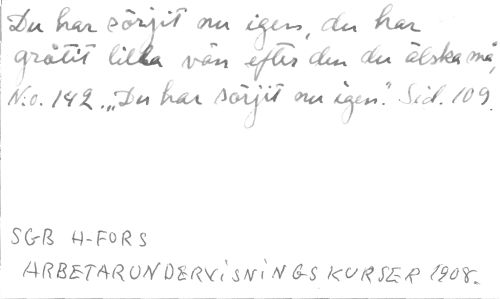 Du har sörjit nu igen, du har
gråtit lilla vän efter den du älska må,
N:o. 142. „Du har sörjit nu igen". Sid. 109.
SGB H-FORS
ARBETARUNDERVISNINGSKURSER 1908.